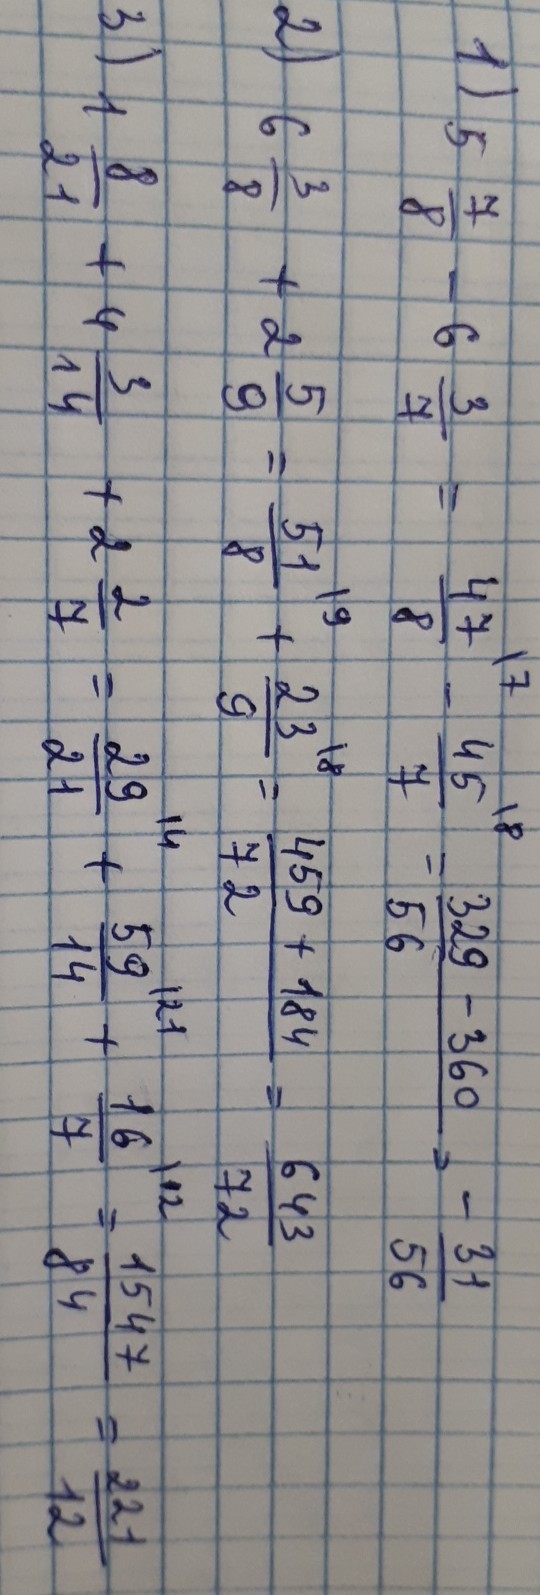 1) 5 7/8 - 6 3/7 = 47/8 \7 - 45/7 \8 = (329 - 360)/56 = - 31/56
2) 6 3/8 + 2 5/9 = 51/8 \9 + 23/9 \8 = (459 + 184)/72 = 643/72
3) 1 8/21 + 4 3/14 + 2 2/7 = 29/21 \4 + 59/14 \21 + 16/7 \12 = 1547/84 = 221/12